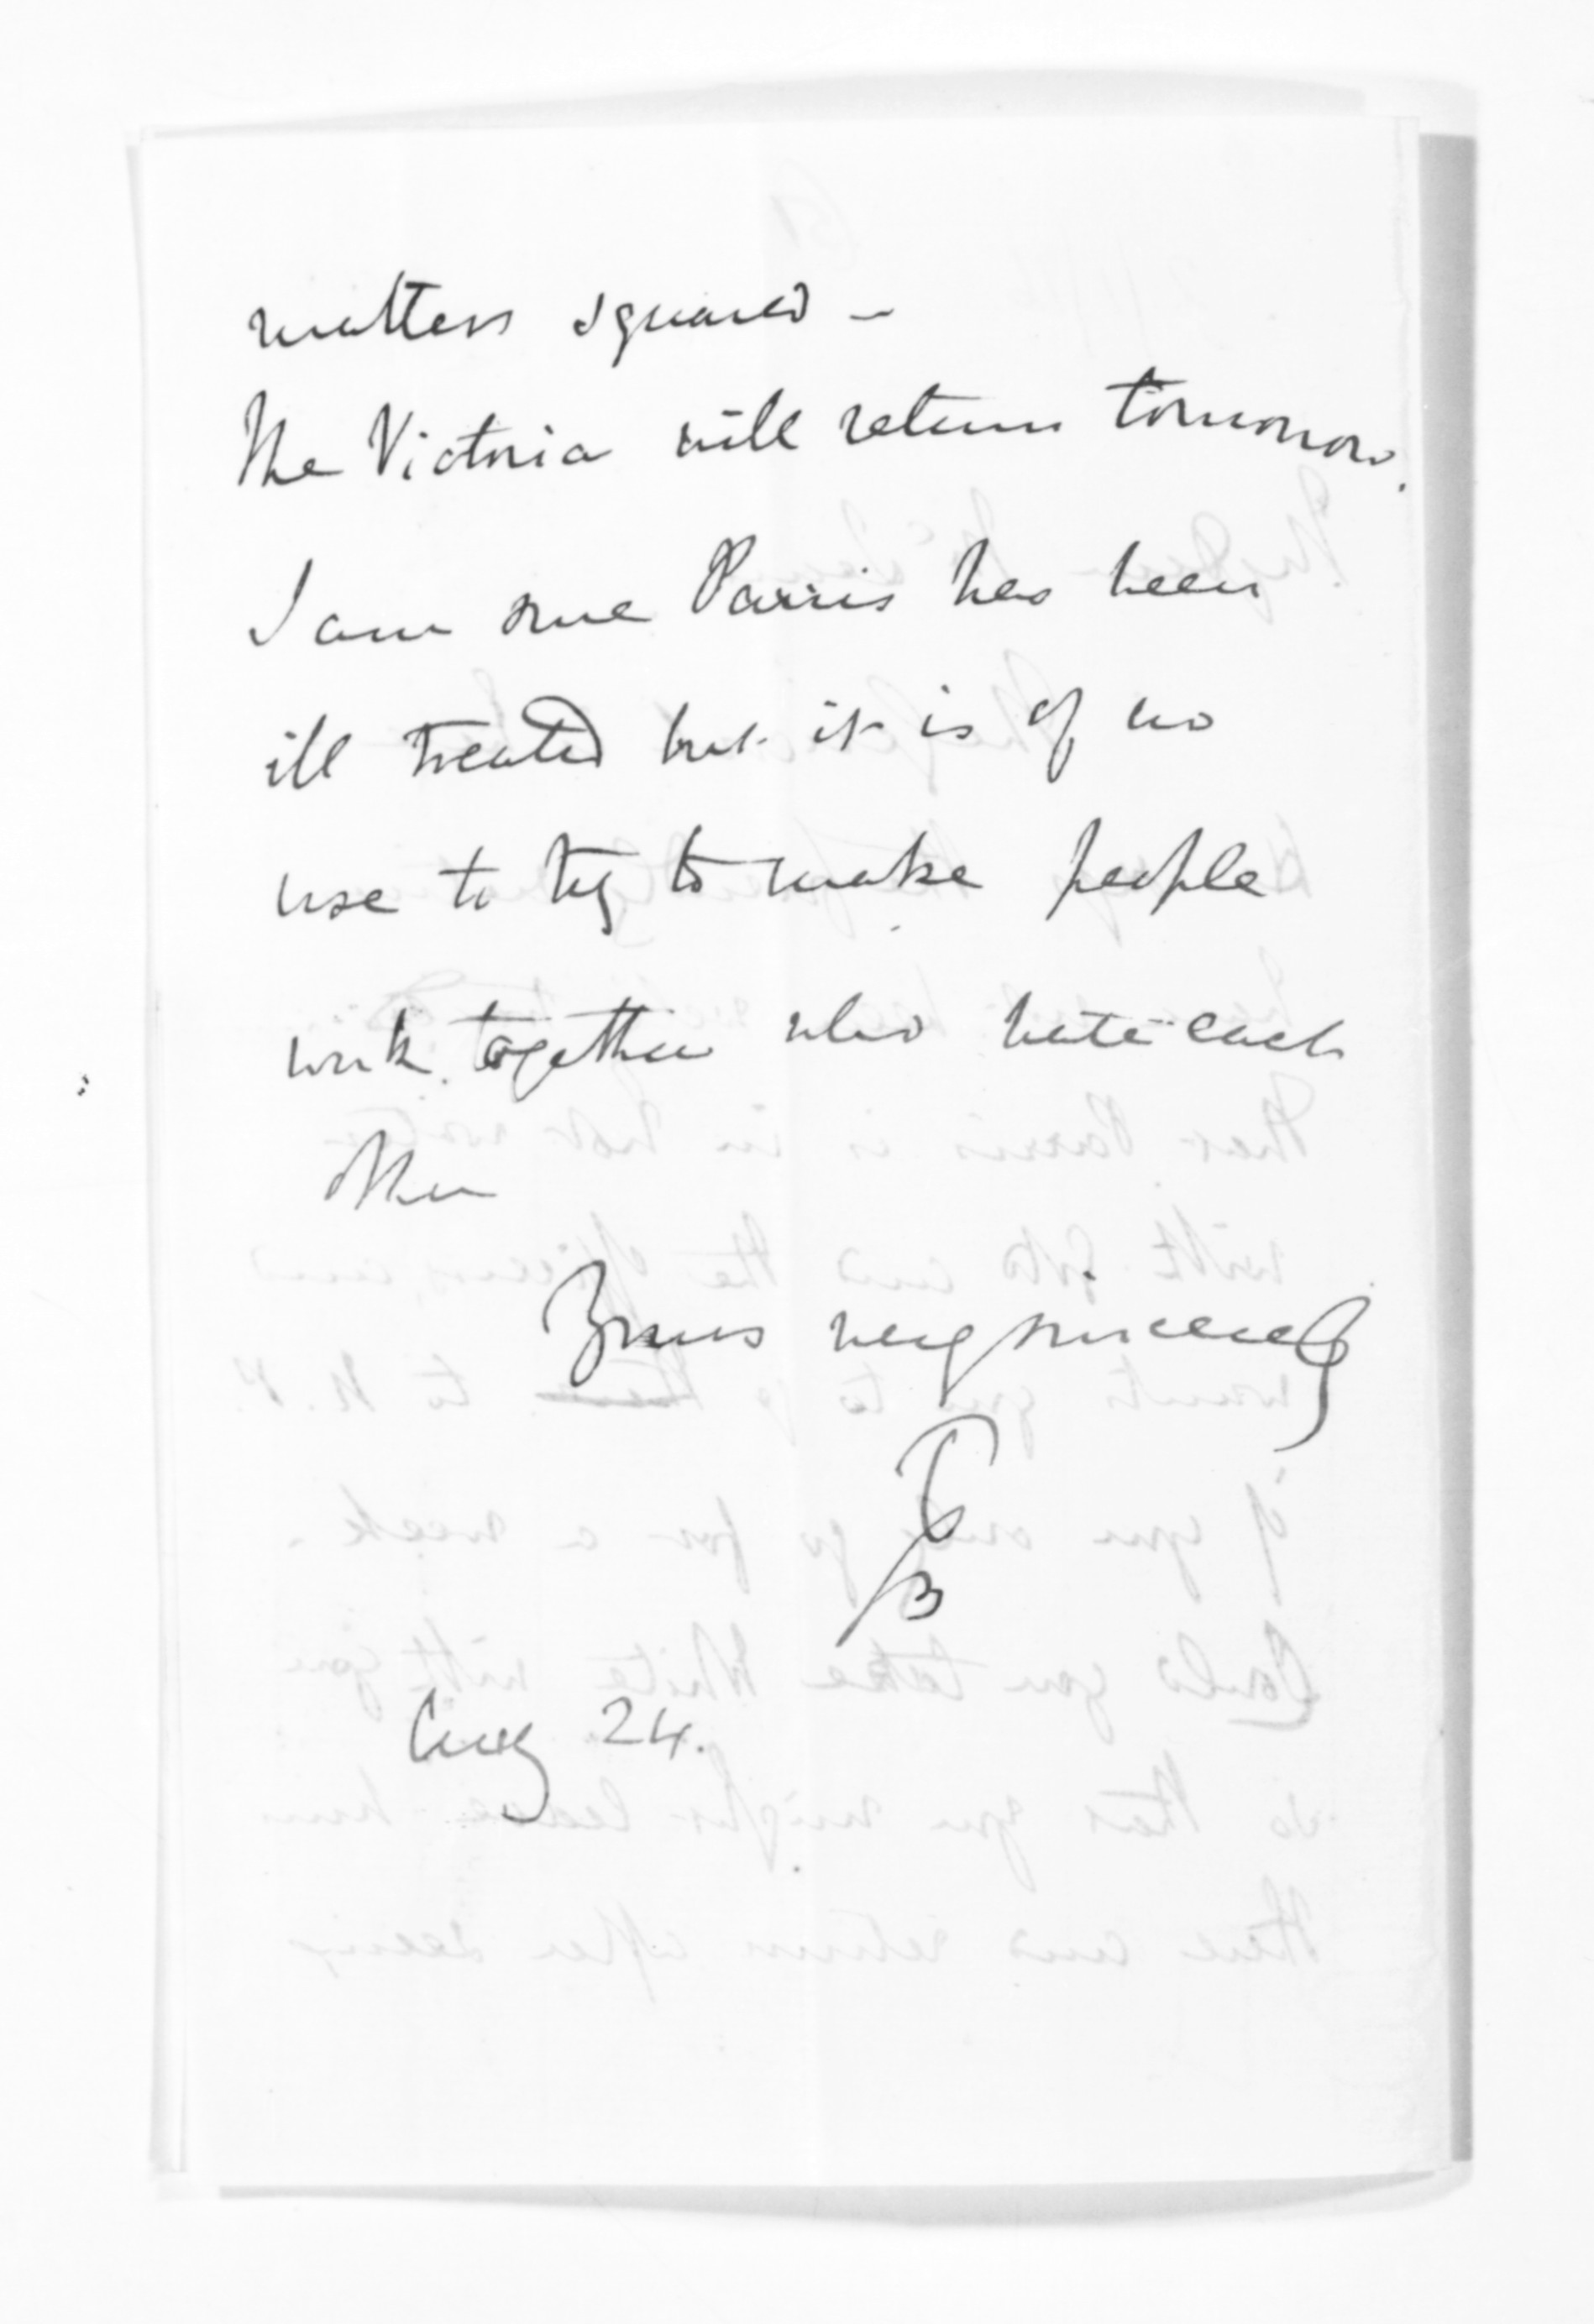 matters squared –
The Victoria will return tomorrow.
I am sure Parris has been
ill treated but it is of no
use to try to make people
work together who hate each
other
Yours very sincerely
Aug 24.